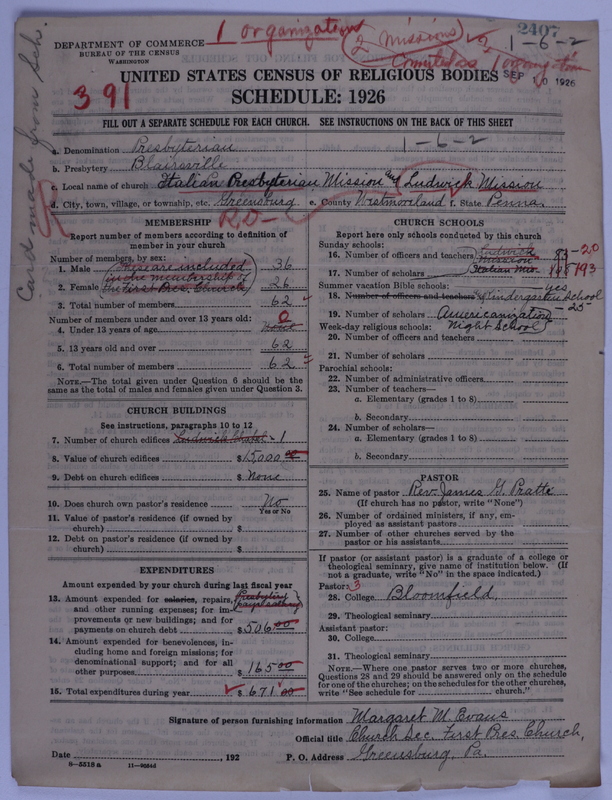 2407
1 organization
2 missions
1-6-2
DEPARTMENT OF COMMERCE
BUREAU OF THE CENSUS
WASHINGTON
UNITED STATES CENSUS OF RELIGIOUS BODIES
SEP 10 1926
391
SCHEDULE: 1926
FILL OUT A SEPARATE SCHEDULE FOR EACH CHURCH. SEE INSTRUCTIONS ON THE BACK OF THIS SHEET
Card made from Sch.
a. Denomination Presbyterian 1-6-2
b. Presbytery Blairsville
c. Local name of church Italian Presbyterian Mission and Ludwick Mission
d. City, town, village, or township, etc. Greensburg e. County Westmoreland f. State Penna.
MEMBERSHIP
Report number of members according to definition of
member in your church
Number of members, by sex:
1. Male These are included 36
2. Female in First Pres. Church 26
3. Total number of members 62
Number of members under and over 13 years old: 0
4. Under 13 years of age None
5. 13 years old and over 62
6. Total number of members 62
NOTE.—The total given under Question 6 should be
same as the total of males and females given under Question 3.
CHURCH BUILDINGS
See instructions, paragraphs 10 to 12
7. Number of church edifices Ludwick Chapel - 1
8. Value of church edifices $15,000.00
9. Debt on church edifices $ None
10. Does church own pastor's residence No
Yes or No
11. Value of pastor's residence (if owned by
church) $
12. Debt on pastor's residence (if owned by
church) $
EXPENDITURES
Amount expended by your church during last fiscal year
13. Amount expended for salaries, repairs, Presbytery
and other running expenses; for im- pays salary
provements or new buildings; and for
payments on church debt $506.00
14. Amount expended for benevolences, in-
cluding home and foreign missions; for
denominational support; and for all
other purposes $165.00
15. Total expenditures during year $671.00
CHURCH SCHOOLS
Report here only schools conducted by this church
Sunday schools:
16. Number of officers and teachers Ludwick Mission 20
17. Number of scholars Italian Mis. 193
Summer vacation Bible schools: yes
18. Number of officers and teachers Kindergarten School
25
19. Number of scholars Americanization
Week-day religious schools: Night School
20. Number of officers and teachers
21. Number of scholars
Parochial schools:
22. Number of administrative officers
23. Number of teachers—
a. Elementary (grades 1 to 8)
b. Secondary
24. Number of scholars—
a. Elementary (grades 1 to 8)
b. Secondary
PASTOR
25. Name of pastor Rev. James G. Pratte
(If church has no pastor, write "None")
26. Number of ordained ministers, if any, em-
ployed as assistant pastors
27. Number of other churches served by the
pastor or his assistants
If pastor (or assistant pastor) is a graduate of a college or
theological seminary, give name of institution below. (If
not a graduate, write "No" in the space indicated.)
Pastor: 3
28. College Bloomfield
29. Theological seminary
Assistant pastor:
30. College
31. Theological seminary
NOTE.—Where one pastor serves two or more churches,
Questions 28 and 29 should be answered only on the schedule
for one of the churches; on the schedules for the other churches,
write "See schedule for church."
Signature of person furnishing information Margaret M. Evans
Official title Church Sec. First Pres. Church,
Date , 192 P. O. Address Greensburg, Pa.
8-5518 a